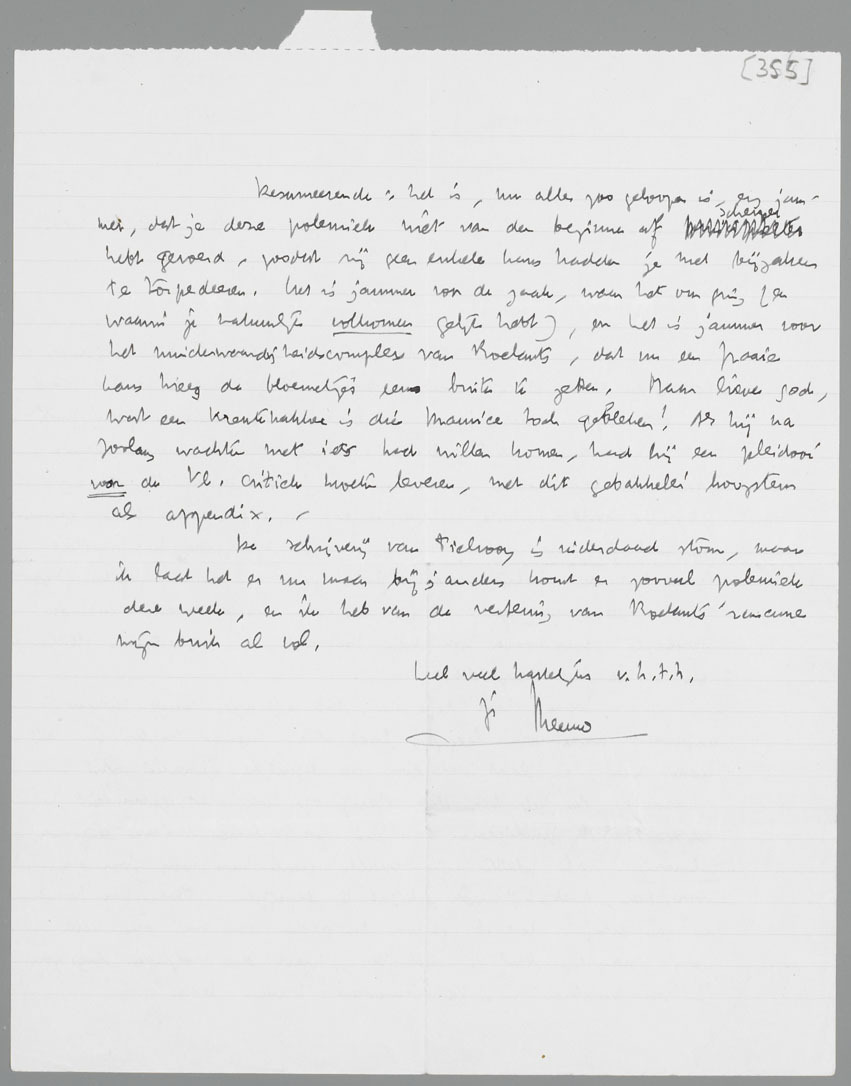 [355]
Resumeerende: het is, nu alles zoo geloopen is, erg jam-
mer, dat je deze polemiek niet van den beginne af scherper
hebt gevoerd, zoodat zij geen enkele kans hadden je met bijzaken
te torpedeeren. Het is jammer voor de zaak, waar het om ging (en
waarin je natuurlijk volkomen gelijk hebt), en het is jammer voor
het minderwaardigheidscomplex van Roelants, dat nu een fraaie
kans kreeg de bloemetjes eens buiten te zetten. Maar lieve god,
wat een krentenkakker is die Maurice toch gebleken! Als hij na
zoolang wachten met iets had willen komen, had hij een pleidooi
voor de Vl. critiek moeten leveren, met dit gebakkelei hoogstens
als appendix. –
De schrijverij van Tielrooy is inderdaad stom, maar
ik laat het er nu maar bij; anders komt er zooveel polemiek
deze week, en ik heb van de vertering van Roelants' rancune
mijn buik al vol.
Heel veel hartelijks v.h.t.h.
je Menno